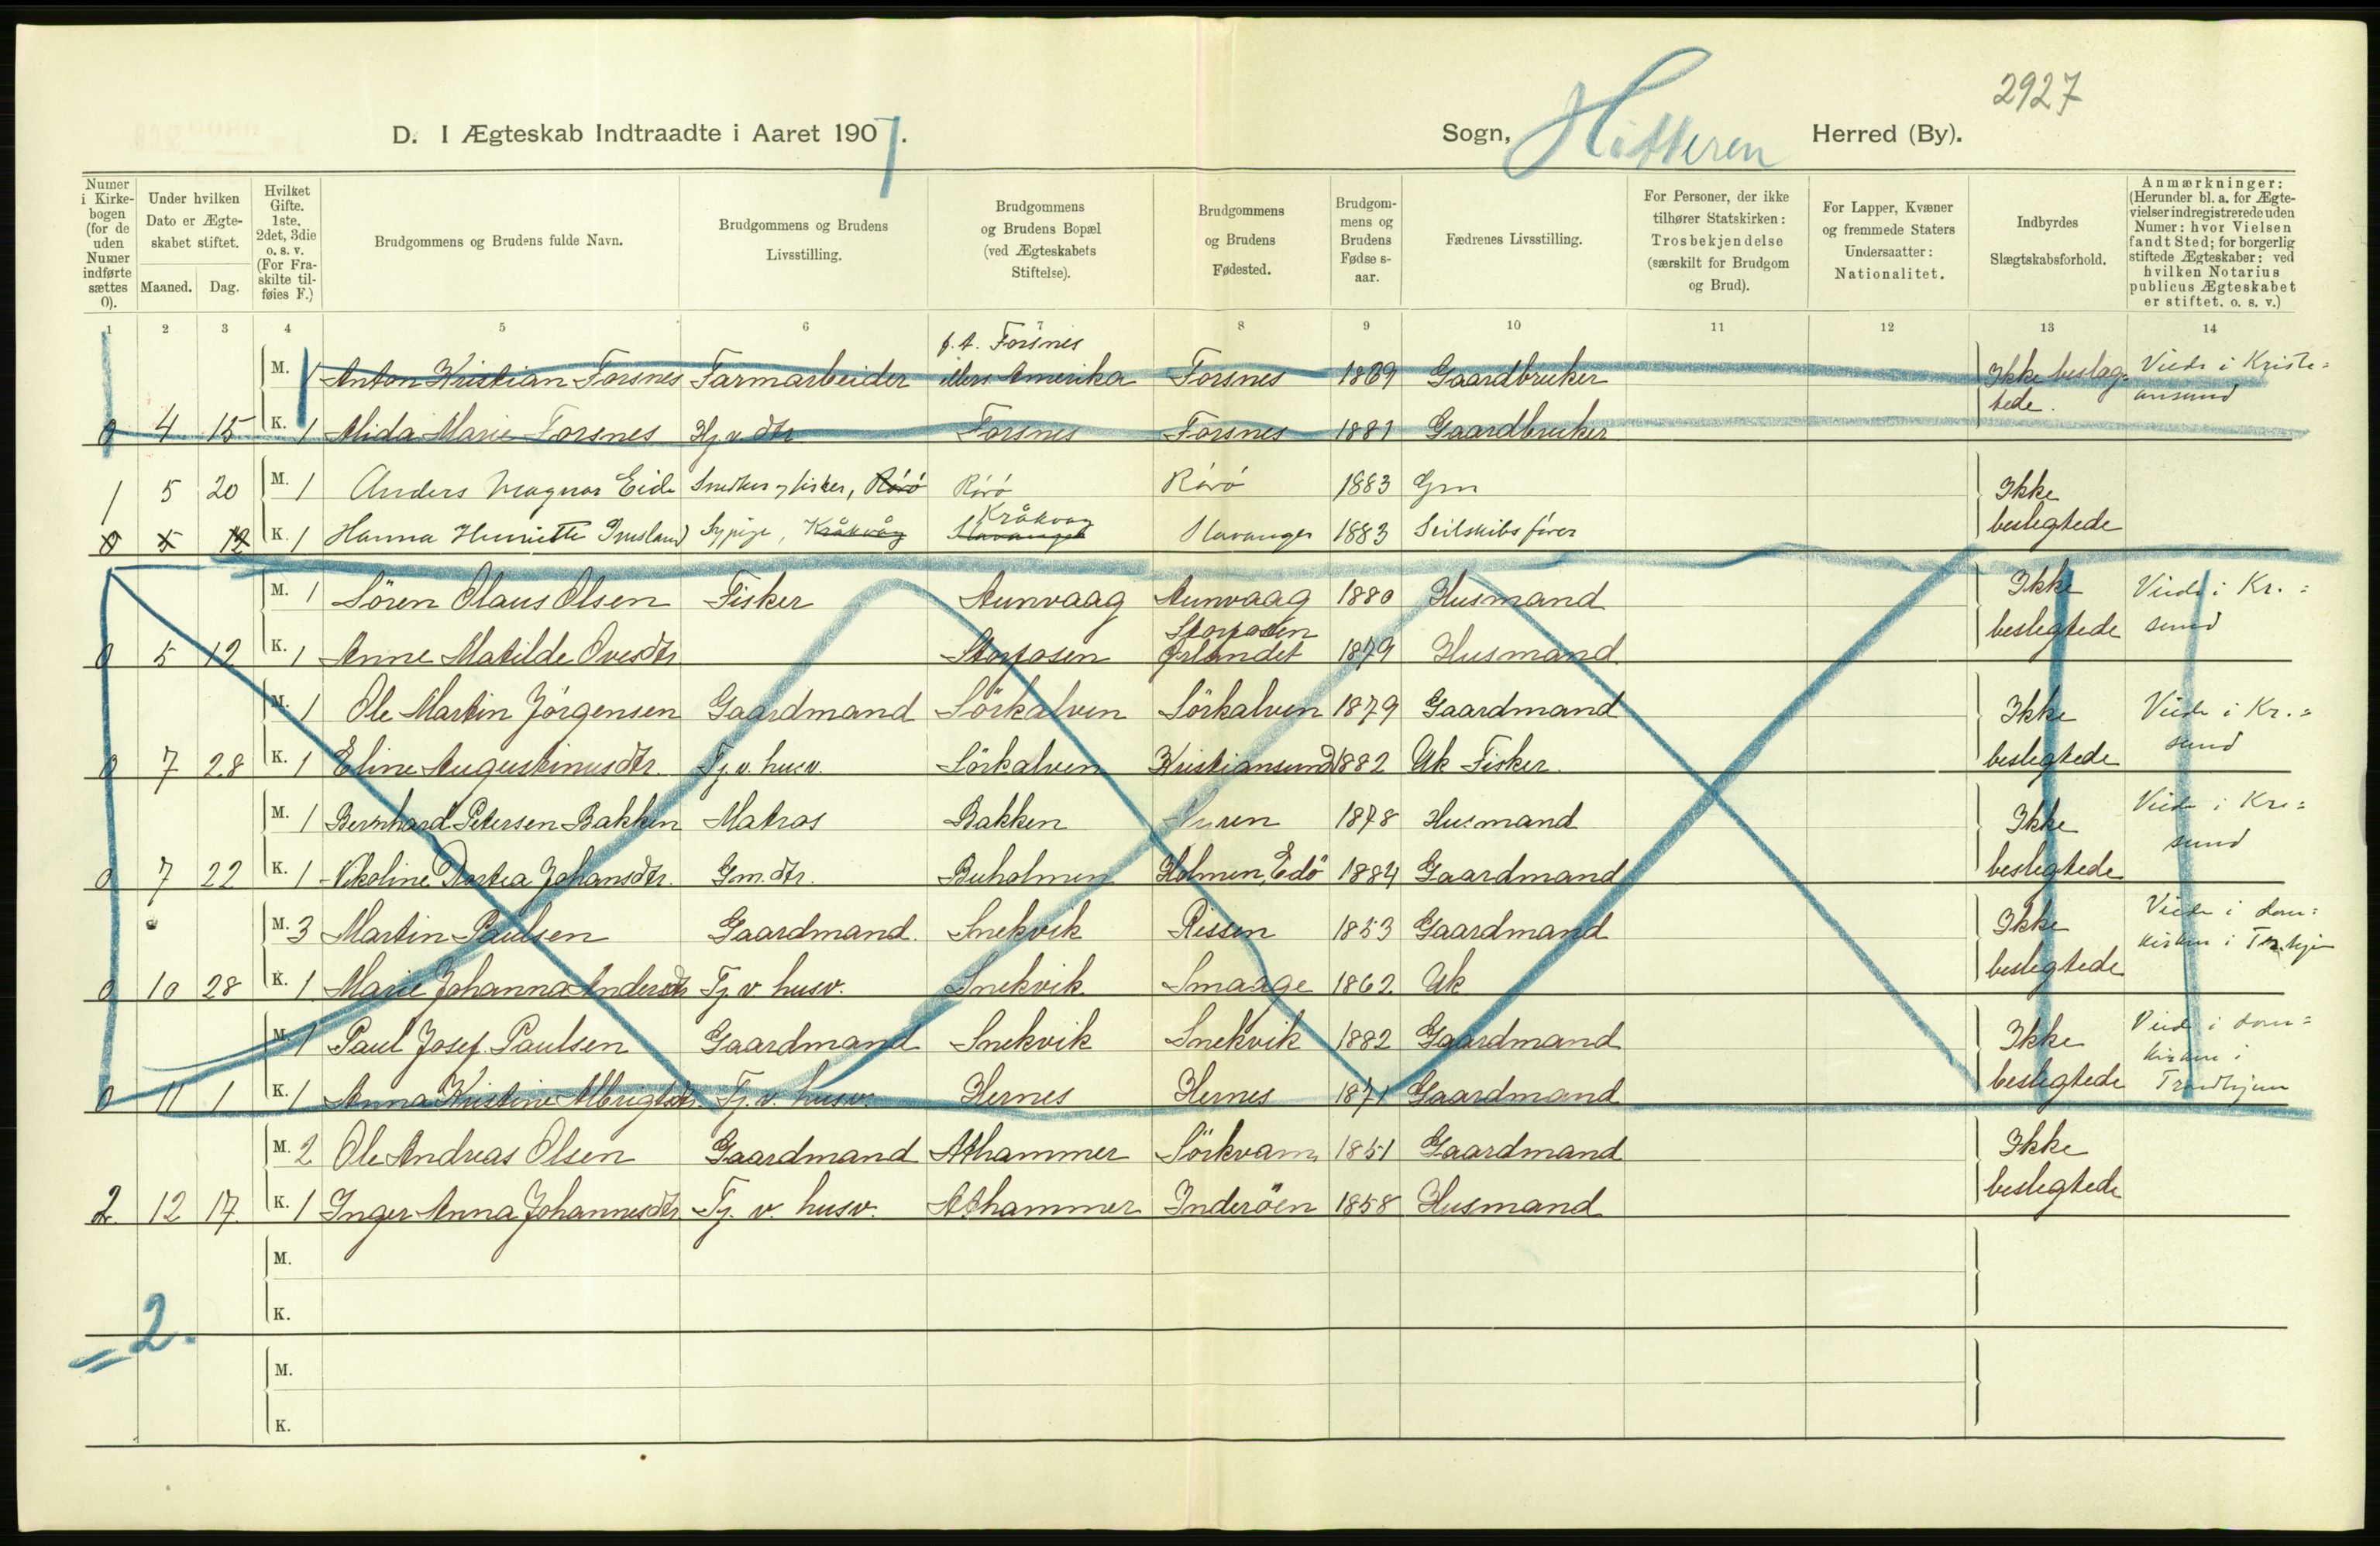 2927
D. I Ægteskab Indtraadte i Aaret 1907.
Sogn, Hitteren Herred (By).
Numer i Kirke-bogen (for de uden Numer indførte sættes 0).
Under hvilken Dato er Ægte-skabet stiftet.
Maaned. Dag.
Hvilket Gifte. 1ste, 2det, 3die o. s. v. (For Fra-skilte til-føies F.)
Brudgommens og Brudens fulde Navn.
Brudgommens og Brudens Livsstilling.
Brudgommens og Brudens Bopæl (ved Ægteskabets Stiftelse).
Brudgommens og Brudens Fødested.
Brudgom-mens og Brudens Fødse s-aar.
Fædrenes Livsstilling.
For Personer, der ikke tilhører Statskirken: Trosbekjendelse (særskilt for Brudgom og Brud).
For Lapper, Kvæner og fremmede Staters Undersaatter: Nationalitet.
Indbyrdes Slægtskabsforhold.
Anmærkninger: (Herunder bl. a. for Ægte-vielser indregistrerede uden Numer: hvor Vielsen fandt Sted; for borgerlig stiftede Ægteskaber: ved hvilken Notarius publicus Ægteskabet er stiftet. o. s. v.)
1 2 3 4 5 6 7 8 9 10 11 12 13 14
f. t. Forsnes
M. 1 Anton Kristian Forsnes Farmarbeider ellers Amerika Forsnes 1869 Gaardbruker Ikke beslæg- Viede i Kristi=
tede. ansund
0 4 15 K. 1 Alida Marie Forsnes Hj. v. dtr. Forsnes Forsnes 1881 Gaardbruker
1 5 20 M. 1 Anders Magnar Eide Snedker og fisker, Róró Róró Róró 1883 Gm Ikke
Kråkvåg
0 5 12 K. 1 Hanna Henriette Sypige, Kråkvåg Stavanger Stavanger 1883 Seilskibsfører beslegtede
M. 1 Sören Olaus Olsen Fisker Aunvaag Aunvaag 1880 Husmand Ikke Viede i Kr.=
Storfosen
0 5 12 K. 1 Anne Matilde Ovesdtr. Storfosen Ørlandet 1879 Husmand beslegtede sund
M. 1 Ole Martin Jörgensen Gaardmand Sörkalven Sörkalven 1879 Gaardmand Ikke Viede i Kr.=
0 7 28 K. 1 Eline Augustinusdtr. Tj. v. husv. Sörkalven Kristiansund 1882 Uk Fisker. beslegtede sund
M. 1 Bernhard Petersen Bakken Matros Bakken 1878 Husmand Ikke Viede i Kr.=
0 7 22 K. 1 Nikoline Dortea Johansdtr. Gm. dtr. Buholmen Holmen, Edö 1884 Gaardmand beslegtede sund
M. 3 Martin Paulsen Gaardmand. Snekvik Rissen 1853 Gaardmand Ikke Viede i dom=
0 10 28 K. 1 Marie Johanna Andersdtr Tj. v. husv. Snekvik Smaage 1862. Uk beslegtede kirken i Tr.hjem
M. 1 Paul Josef. Paulsen Gaardmand Snekvik Snekvik 1882 Gaardmand Ikke Viede i dom=
kirken i
0 11 1 K. 1 Anna Kristine Albrigtsdtr. Tj. v. husv. Hernes Hernes 1871 Gaardmand beslegtede Trondhjem
M. 2 Ole Andreas Olsen Gaardmand Athammer Sörkvam 1851 Gaardmand Ikke
2 12 17. K. 1 Inger Anna Johannesdtr. Tj. v. husv. Athammer Inderöen 1858 Husmand beslegtede
M.
K.
= 2.
M.
K.